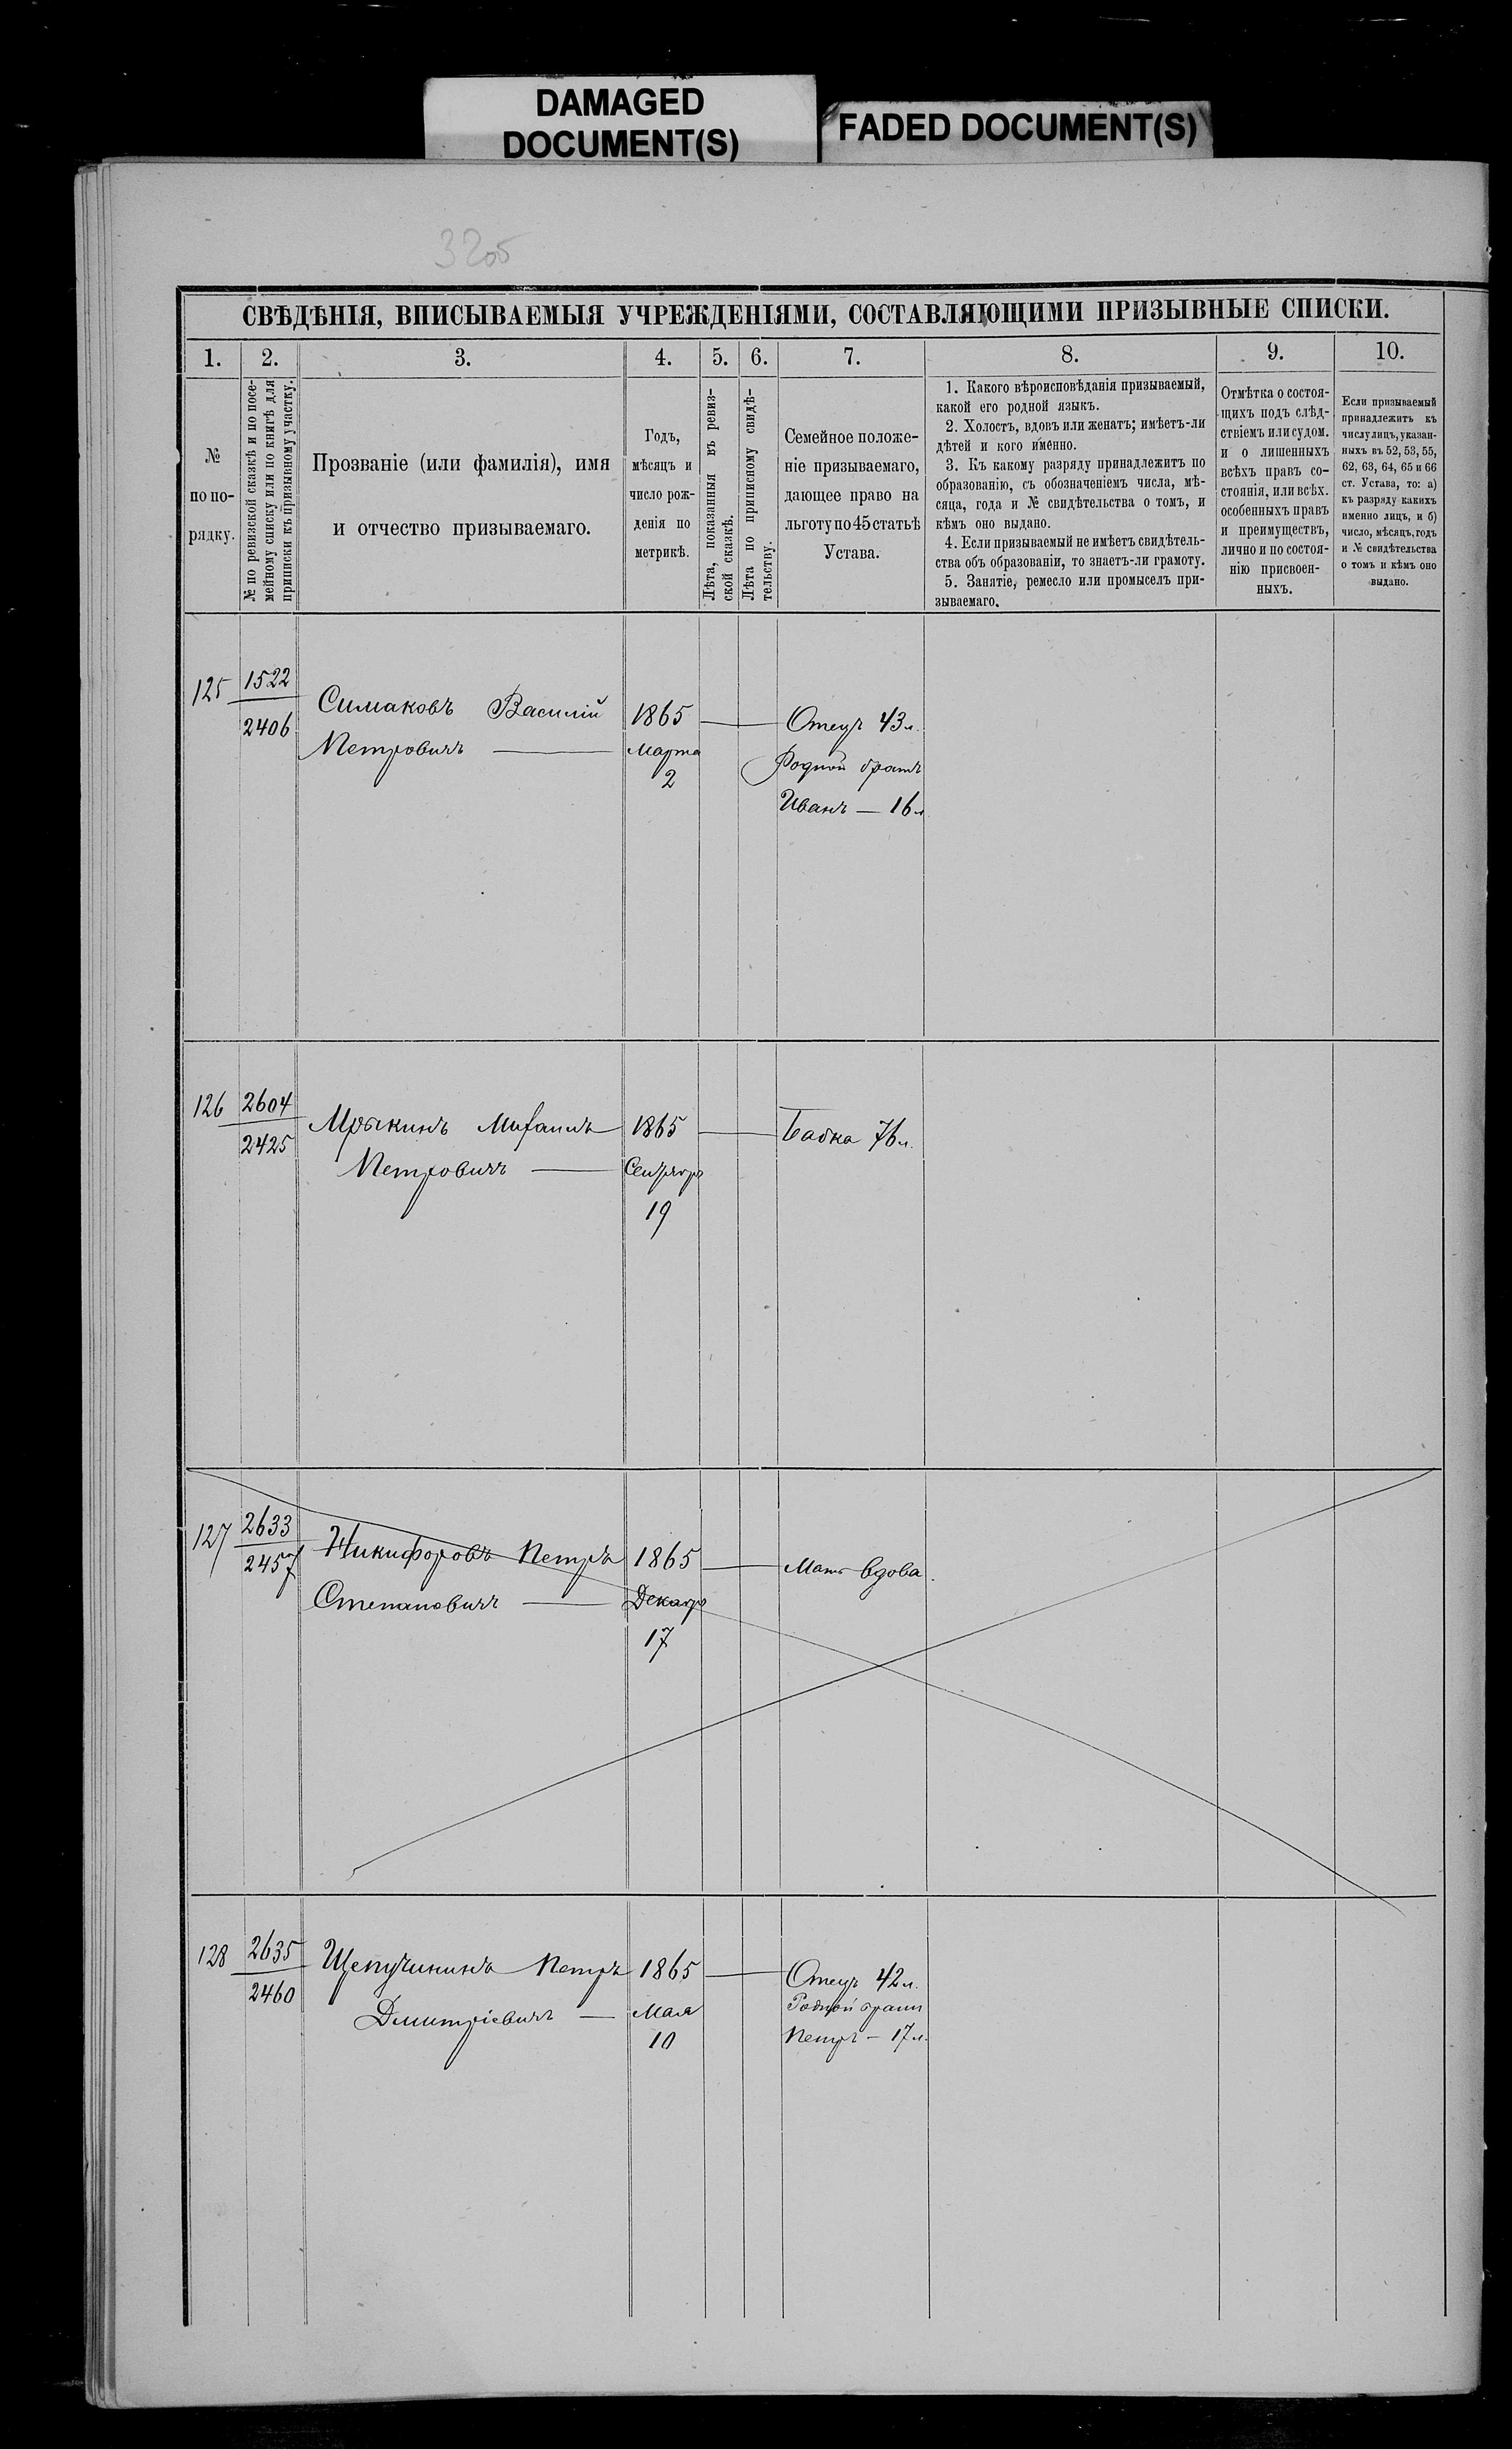 DAMAGED
DOCUMENT(S)
FADED DOCUMENT(S)
3205
СВѢДѢНІЯ, ВПИСЫВАЕМЫЯ УЧРЕЖДЕНІЯМИ, СОСТАВЛЯЮЩИМИ ПРИЗЫВНЫЕ СПИСКИ.
1. 2. 3. 4. 5. 6. 7. 8. 9. 10.
№
по по-
рядку.
№ по ревизской сказкѣ и по посе-
мейному списку или по книгѣ для
приписки къ призывному участку.
Прозваніе (или фамилія), имя
и отчество призываемаго.
Годъ,
мѣсяцъ и
число рож-
денія по
метрикѣ.
Лѣта, показанныя въ ревиз-
ской сказкѣ.
Лѣта по приписному свидѣ-
тельству.
Семейное положе-
ніе призываемаго,
дающее право на
льготу по 45 статьѣ
Устава.
1. Какого вѣроисповѣданія призываемый,
какой его родной языкъ.
2. Холостъ, вдовъ или женатъ; имѣетъ-ли
дѣтей и кого именно.
3. Къ какому разряду принадлежитъ по
образованію, съ обозначеніемъ числа, мѣ-
сяца, года и № свидѣтельства о томъ, и
кѣмъ оно выдано.
4. Если призываемый не имѣетъ свидѣтель-
ства объ образованіи, то знаетъ-ли грамоту.
5. Занятіе, ремесло или промыселъ при-
зываемаго.
Отмѣтка о состоя-
щихъ подъ слѣд-
ствіемъ или судом.
и о лишенныхъ
всѣхъ правъ со-
стоянія, или всѣх.
особенныхъ правъ
и преимуществъ,
лично и по состоя-
нію присвоен-
ныхъ.
Если призываемый
принадлежитъ къ
числу лицъ, указан-
ныхъ въ 52, 53, 55,
62, 63, 64, 65 и 66
ст. Устава, то: а)
къ разряду какихъ
именно лицъ, и б)
число, мѣсяцъ, годъ
и № свидѣтельства
о томъ и кѣмъ оно
выдано.
125 1522
2406
Симаковъ Василій
Петровичъ —
1865
Марта
2
Отецъ 43 л.
Родной братъ
Иванъ — 16 л
126 2604
2425
Михаилъ
Петровичъ —
1865
Сентября
19
Бабка 76 л.
127 2633
2457
Никифоровъ Петръ
Степановичъ —
1865
Декабр
17
Мать вдова.
128 2635
2460
Щепучининъ Петръ
Дмитріевичъ —
1865
Мая
10
Отецъ 42 л.
Родной братъ
Петръ — 17 л.